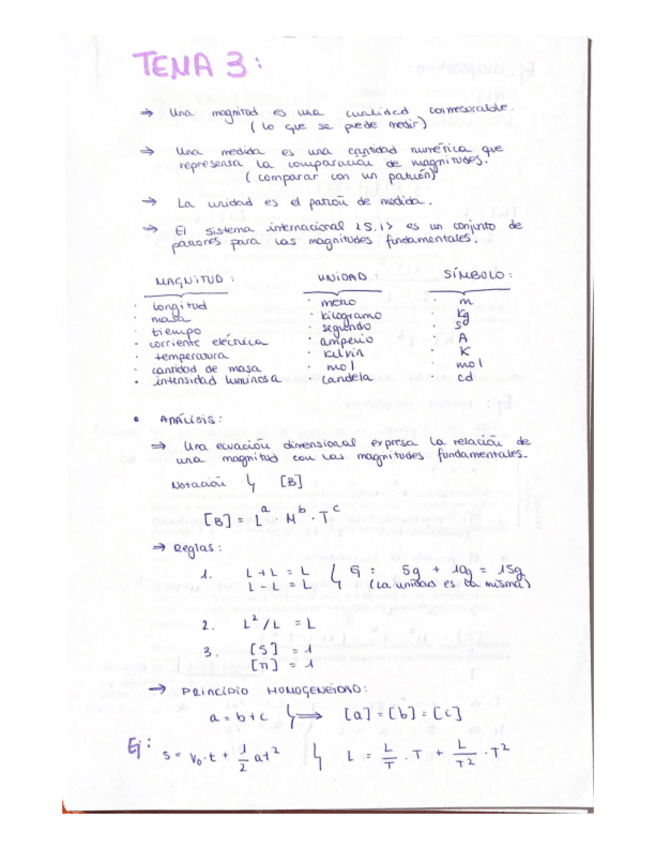 TEMA 3:
⇒ Una magnitud es una cualidad conmesurable.
( lo que se puede medir)
⇒ Una medida es una cantidad numérica que
representa la comparación de magnitudes.
( comparar con un patrón)
⇒ La unidad es el patrón de medida.
⇒ El sistema internacional <S.I> es un conjunto de
patrones para las magnitudes fundamentales.
MAGNITUD: UNIDAD: SÍMBOLO:
· longitud · metro · m
· masa · kilogramo · kg
· tiempo · segundo · s
· corriente eléctrica · amperio · A
· temperatura · kelvin · K
· cantidad de masa · mol · mol
· intensidad luminosa · candela · cd
• ANÁLISIS:
⇒ Una ecuación dimensional expresa la relación de
una magnitud con las magnitudes fundamentales.
Notación [B]
[B] = L^a · M^b · T^c
⇒ Reglas:
1. L + L = L Ej: 5g + 10g = 15g
L - L = L (La unidad es la misma)
2. L²/L = L
3. [5] = 1
[π] = 1
→ PRINCIPIO HOMOGENEIDAD:
a = b + c ⇒ [a] = [b] = [c]
Ej: s = v₀·t + 1/2 at² L = L/T · T + L/T² · T²